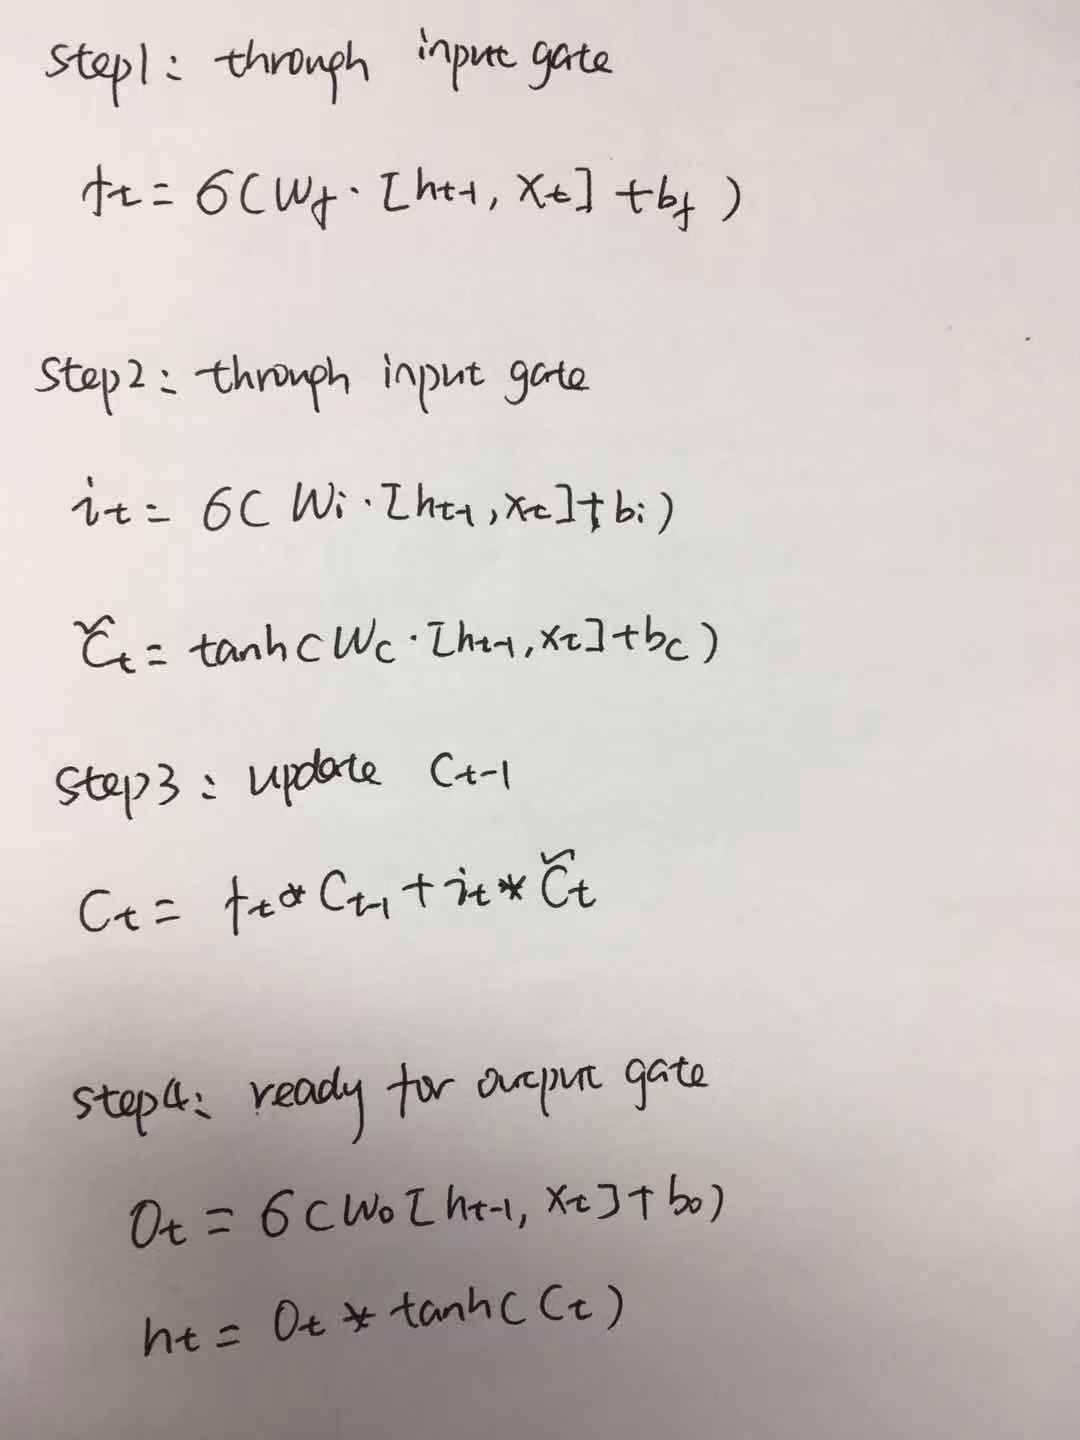 step1: through input gate
ft = σ(Wf · [ht-1, xt] + bf)
step2: through input gate
it = σ(Wi · [ht-1, xt] + bi)
C̃t = tanh(Wc · [ht-1, xt] + bc)
step3: update Ct-1
Ct = ft * Ct-1 + it * C̃t
step4: ready for output gate
Ot = σ(Wo [ht-1, xt] + bo)
ht = Ot * tanh(Ct)